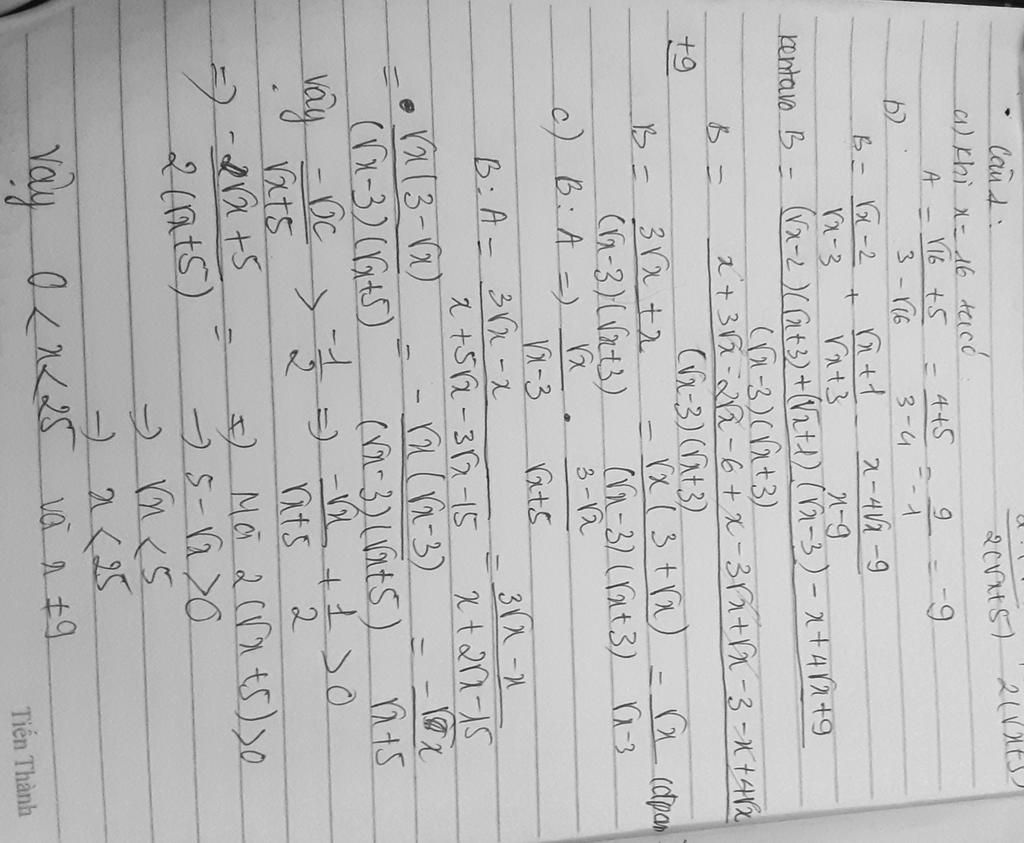 2(√x+5) 2(√x+5)
• Câu 1:
a) Khi x = 16 ta có
A = (√16 + 5)/(3 - √16) = (4+5)/(3-4) = 9/-1 = -9
b)
B = (√x-2)/(√x-3) + (√x+1)/(√x+3) - (x-4√x-9)/(x-9)
B = ((√x-2)(√x+3)+(√x+1)(√x-3) - x+4√x+9)/((√x-3)(√x+3))
B = (x+3√x-2√x-6+x-3√x+√x-3-x+4√x
+9)/((√x-3)(√x+3))
B = (3√x+x)/((√x-3)(√x+3)) = (√x(3+√x))/((√x-3)(√x+3)) = √x/(√x-3)
c) B : A => √x/(√x-3) . (3-√x)/(√x+5)
B : A = (3√x-x)/(x+5√x-3√x-15) = (3√x-x)/(x+2√x-15)
= (√x(3-√x))/((√x-3)(√x+5)) = -(√x(√x-3))/((√x-3)(√x+5)) = -√x/(√x+5)
Vậy -√x/(√x+5) > -1/2 => -√x/(√x+5) + 1/2 > 0
=> (-2√x+5)/(2(√x+5)) = => Mà 2(√x+5)>0
→ 5-√x>0
→ √x<5
→ x<25
Vậy 0<x<25 và x ≠ 9
Tiến Thành